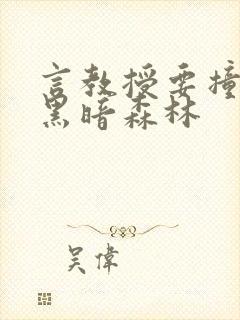 言教授要撞
黑暗森林
吴偉